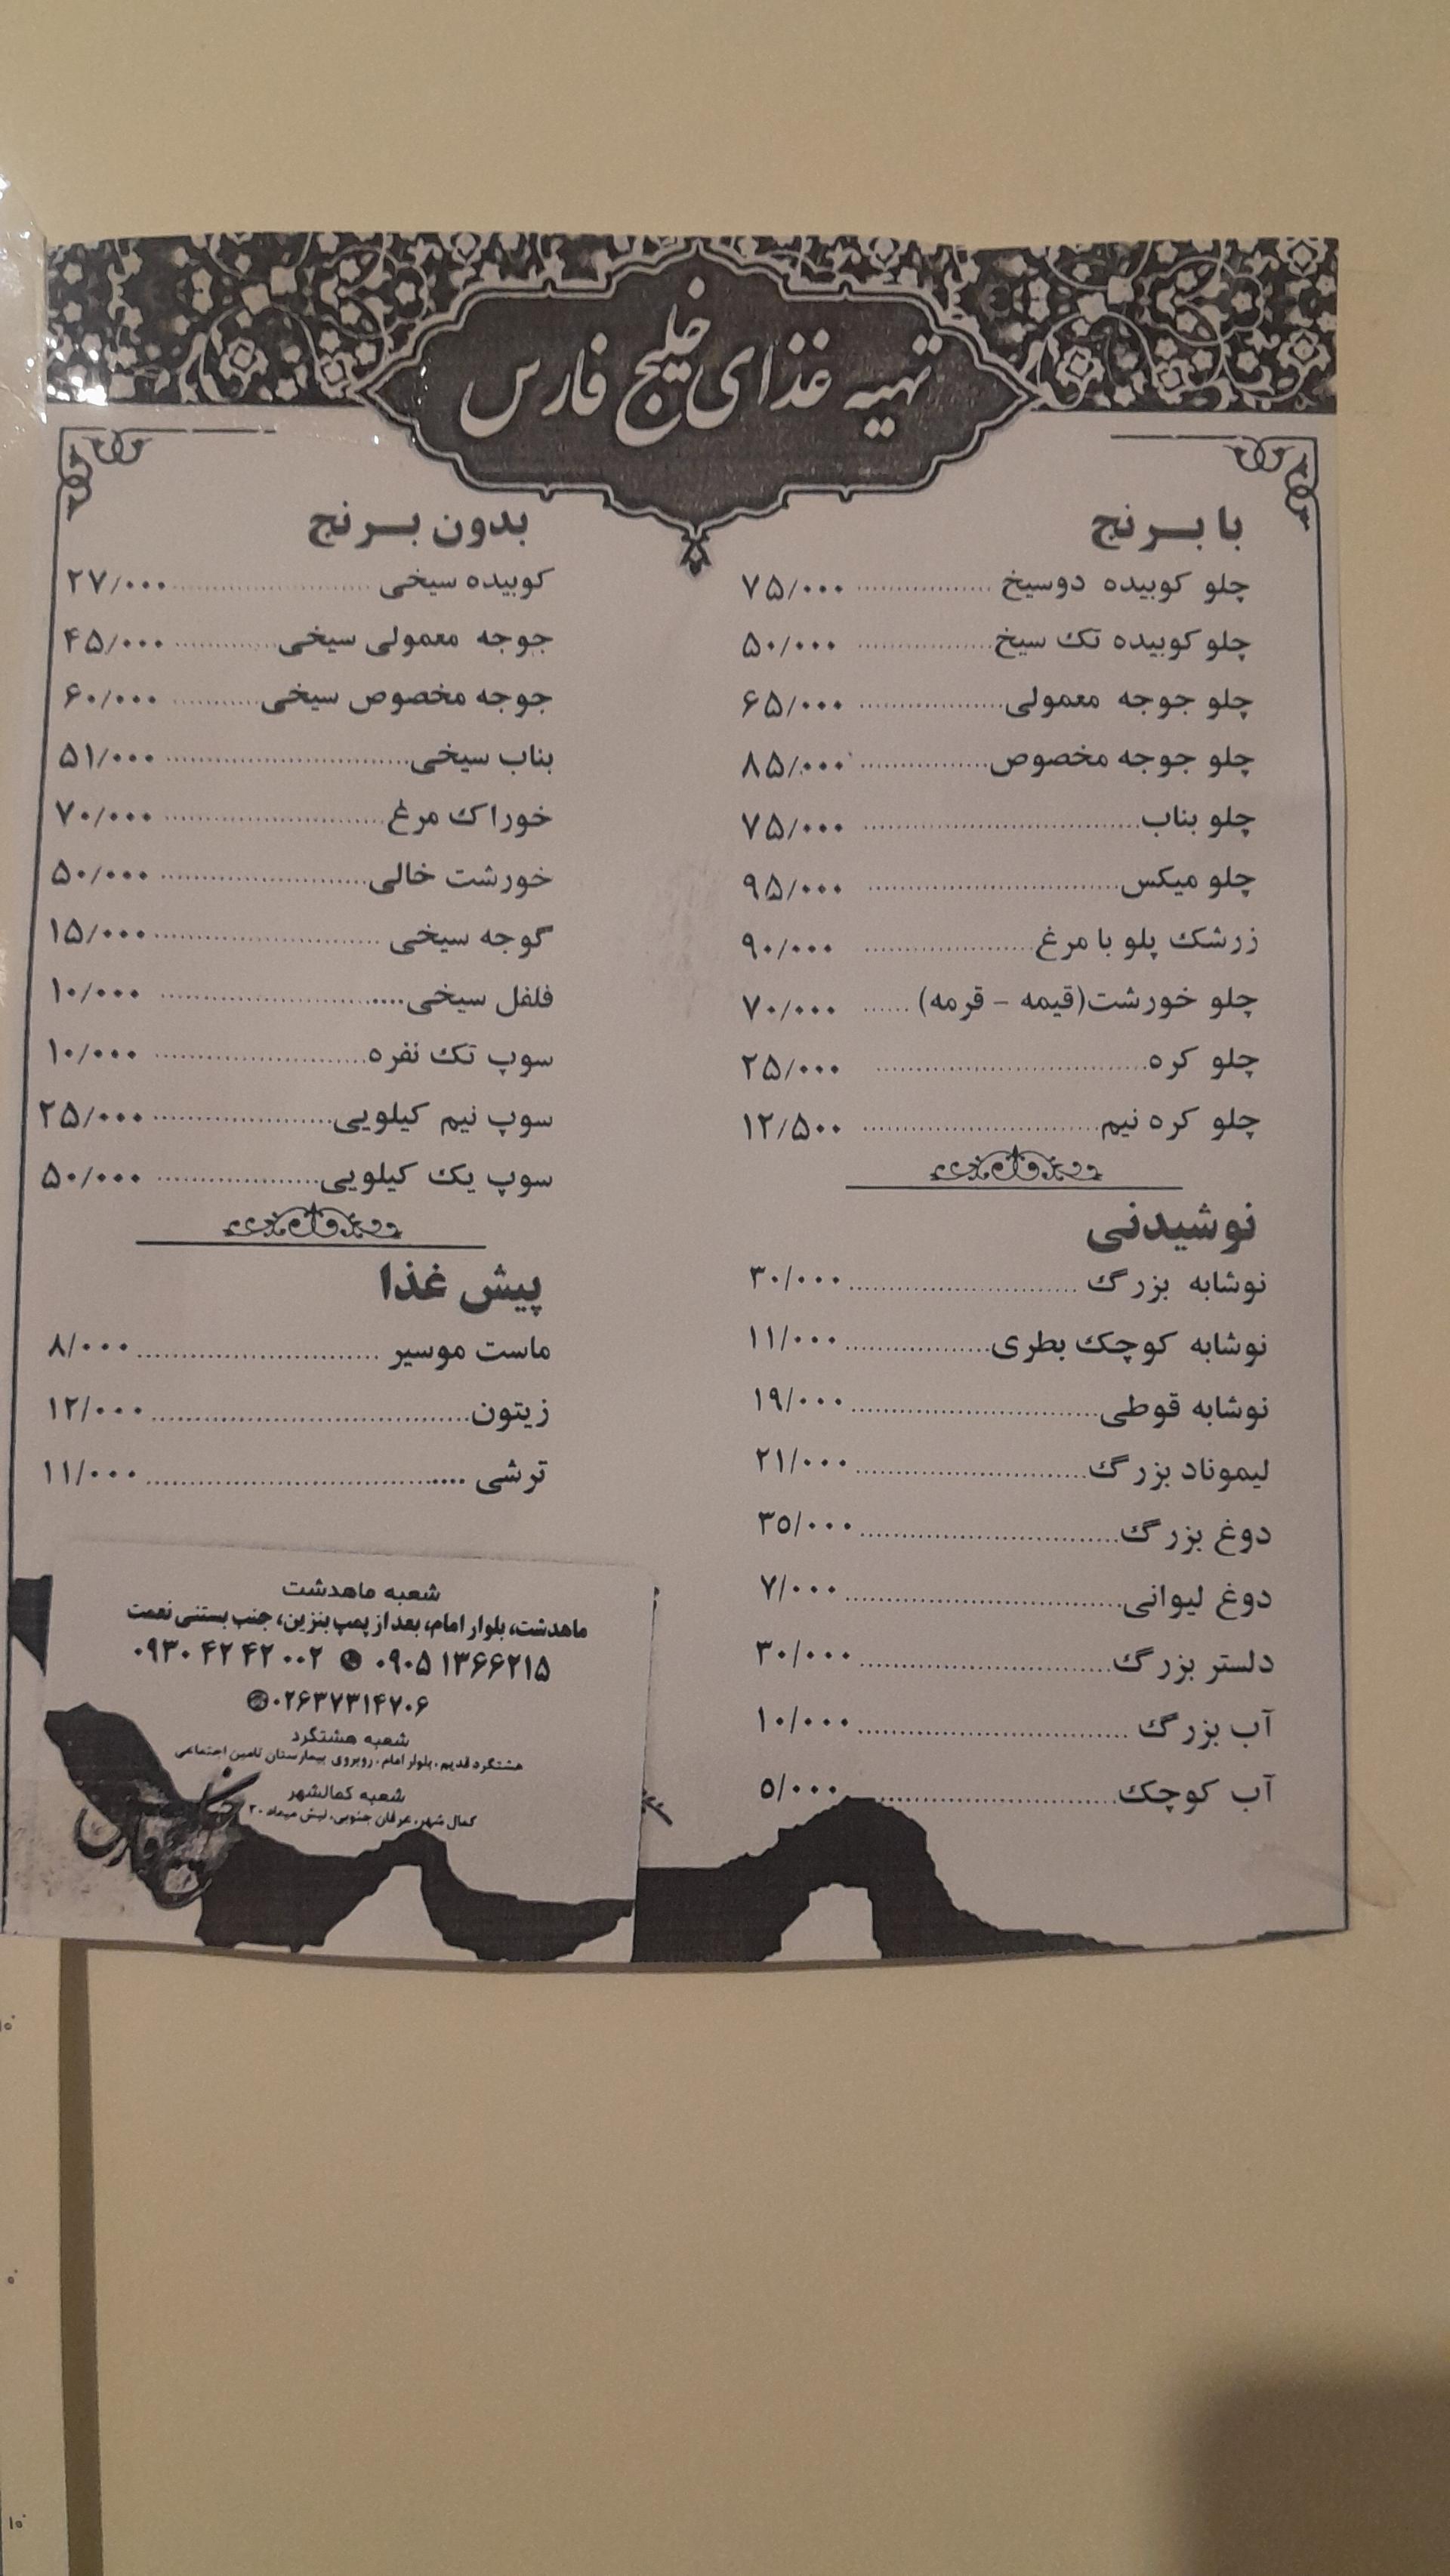 تهیه غذای خلیج فارس
با برنج
چلو کوبیده دوسیخ ۷۵/۰۰۰
چلو کوبیده تک سیخ ۵۰/۰۰۰
چلو جوجه معمولی ۶۵/۰۰۰
چلو جوجه مخصوص ۸۵/۰۰۰
چلو بناب ۷۵/۰۰۰
چلو میکس ۹۵/۰۰۰
زرشک پلو با مرغ ۹۰/۰۰۰
چلو خورشت(قیمه - قرمه) ۷۰/۰۰۰
چلو کره ۲۵/۰۰۰
چلو کره نیم ۱۲/۵۰۰
نوشیدنی
نوشابه بزرگ ۳۰/۰۰۰
نوشابه کوچک بطری ۱۱/۰۰۰
نوشابه قوطی ۱۹/۰۰۰
لیموناد بزرگ ۲۱/۰۰۰
دوغ بزرگ ۳۵/۰۰۰
دوغ لیوانی ۷/۰۰۰
دلستر بزرگ ۳۰/۰۰۰
آب بزرگ ۱۰/۰۰۰
آب کوچک ۵/۰۰۰
بدون برنج
کوبیده سیخی ۲۷/۰۰۰
جوجه معمولی سیخی ۴۵/۰۰۰
جوجه مخصوص سیخی ۶۰/۰۰۰
بناب سیخی ۵۱/۰۰۰
خوراک مرغ ۷۰/۰۰۰
خورشت خالی ۵۰/۰۰۰
گوجه سیخی ۱۵/۰۰۰
فلفل سیخی ۱۰/۰۰۰
سوپ تک نفره ۱۰/۰۰۰
سوپ نیم کیلویی ۲۵/۰۰۰
سوپ یک کیلویی ۵۰/۰۰۰
پیش غذا
ماست موسیر ۸/۰۰۰
زیتون ۱۲/۰۰۰
ترشی ۱۱/۰۰۰
شعبه ماهدشت
ماهدشت، بلوار امام، بعد از پمپ بنزین، جنب بستنی نعمت
۰۹۳۰ ۴۲ ۴۲ ۰۰۲ ۰۹۰۵ ۱۳۶۶۲۱۵
۰۲۶۳۷۳۱۴۷۰۶
شعبه هشتگرد
هشتگرد قدیم، بلوار امام، روبروی بیمارستان تامین اجتماعی
شعبه کمالشهر
کمال شهر، عرفان جنوبی، نبش میعاد ۲۰